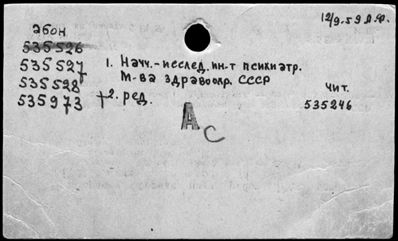 12/9-59
абон
535526
535527
535528
535973
1. Научн.-исслед. ин-т психиатр.
М-ва здравоохр. СССР
+2. ред.
чит.
535246
А с